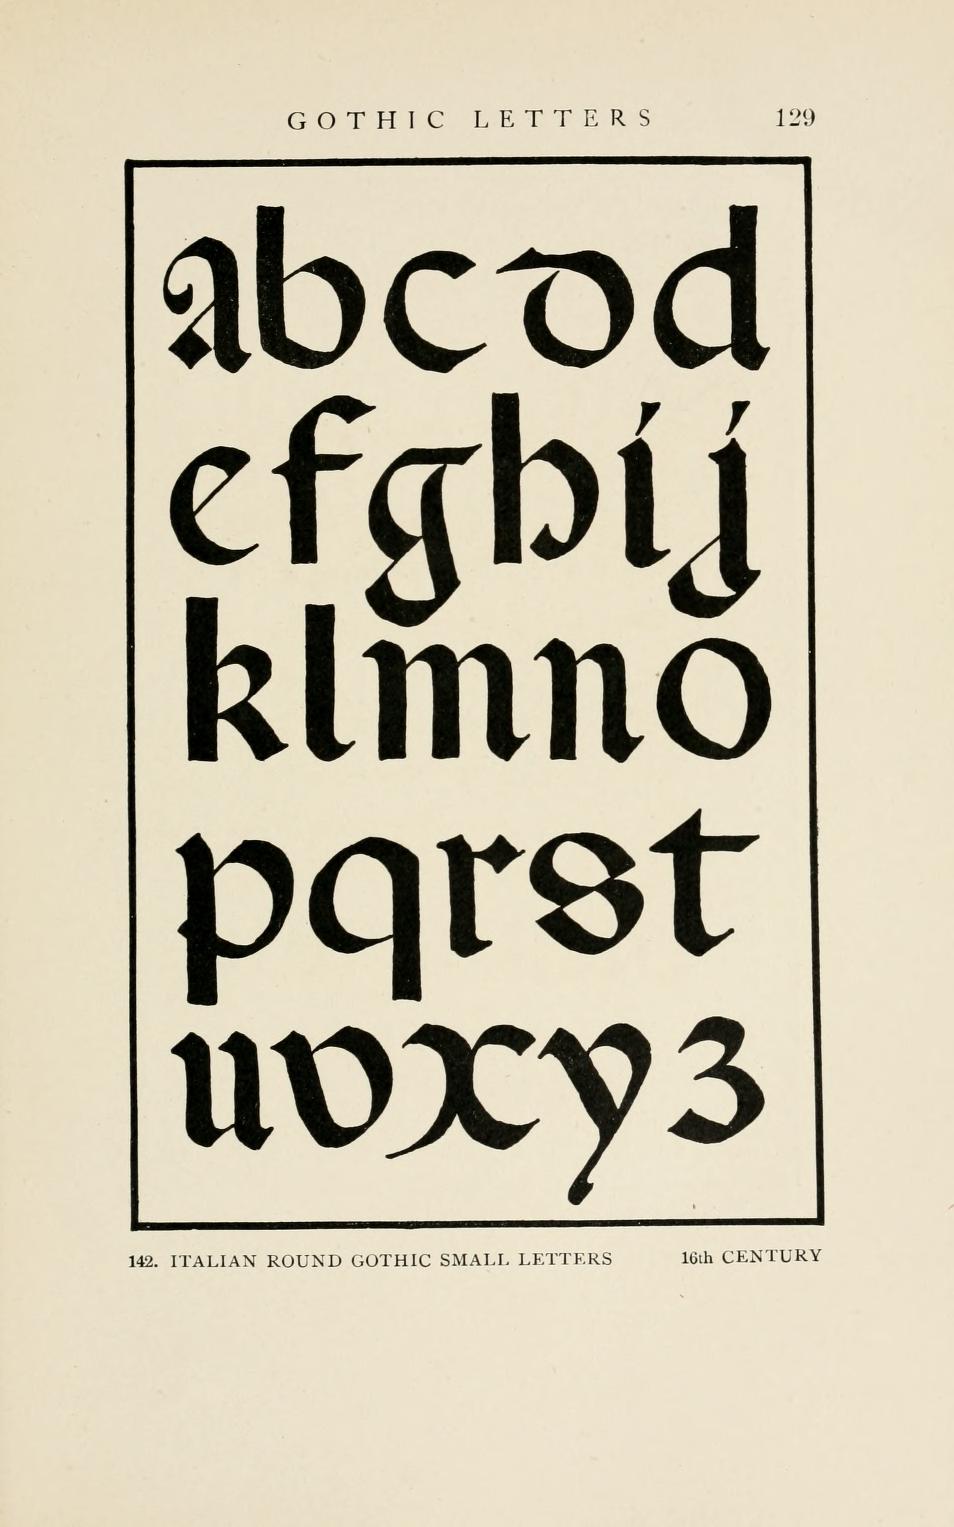 GOTHIC LETTERS 129
abcdd
efghij
klmno
pqrst
uvxyz
142. ITALIAN ROUND GOTHIC SMALL LETTERS 16th CENTURY